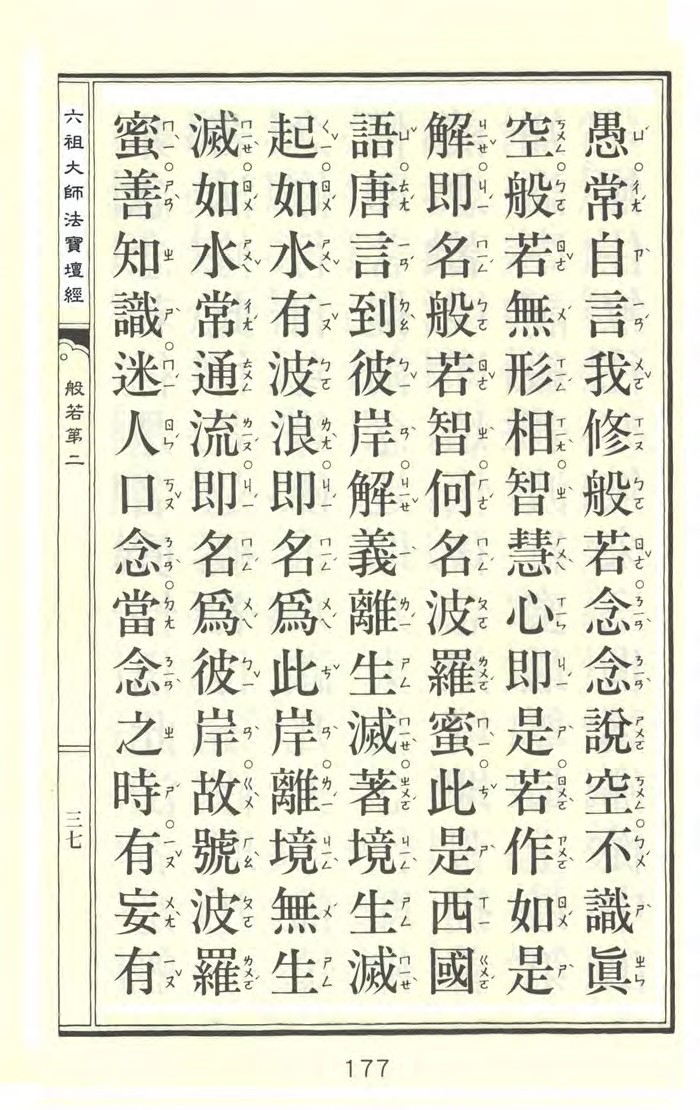 愚。常自言我修般若。念念說空。不識眞
空。般若無形相。智慧心即是。若作如是
解。即名般若智。何名波羅蜜。此是西國
語。唐言到彼岸。解義離生滅。著境生滅
起。如水有波浪。即名爲此岸。離境無生
滅。如水常通流。即名爲彼岸。故號波羅
蜜。善知識。迷人口念。當念之時。有妄有
六祖大師法寶壇經
般若第二
三七
177